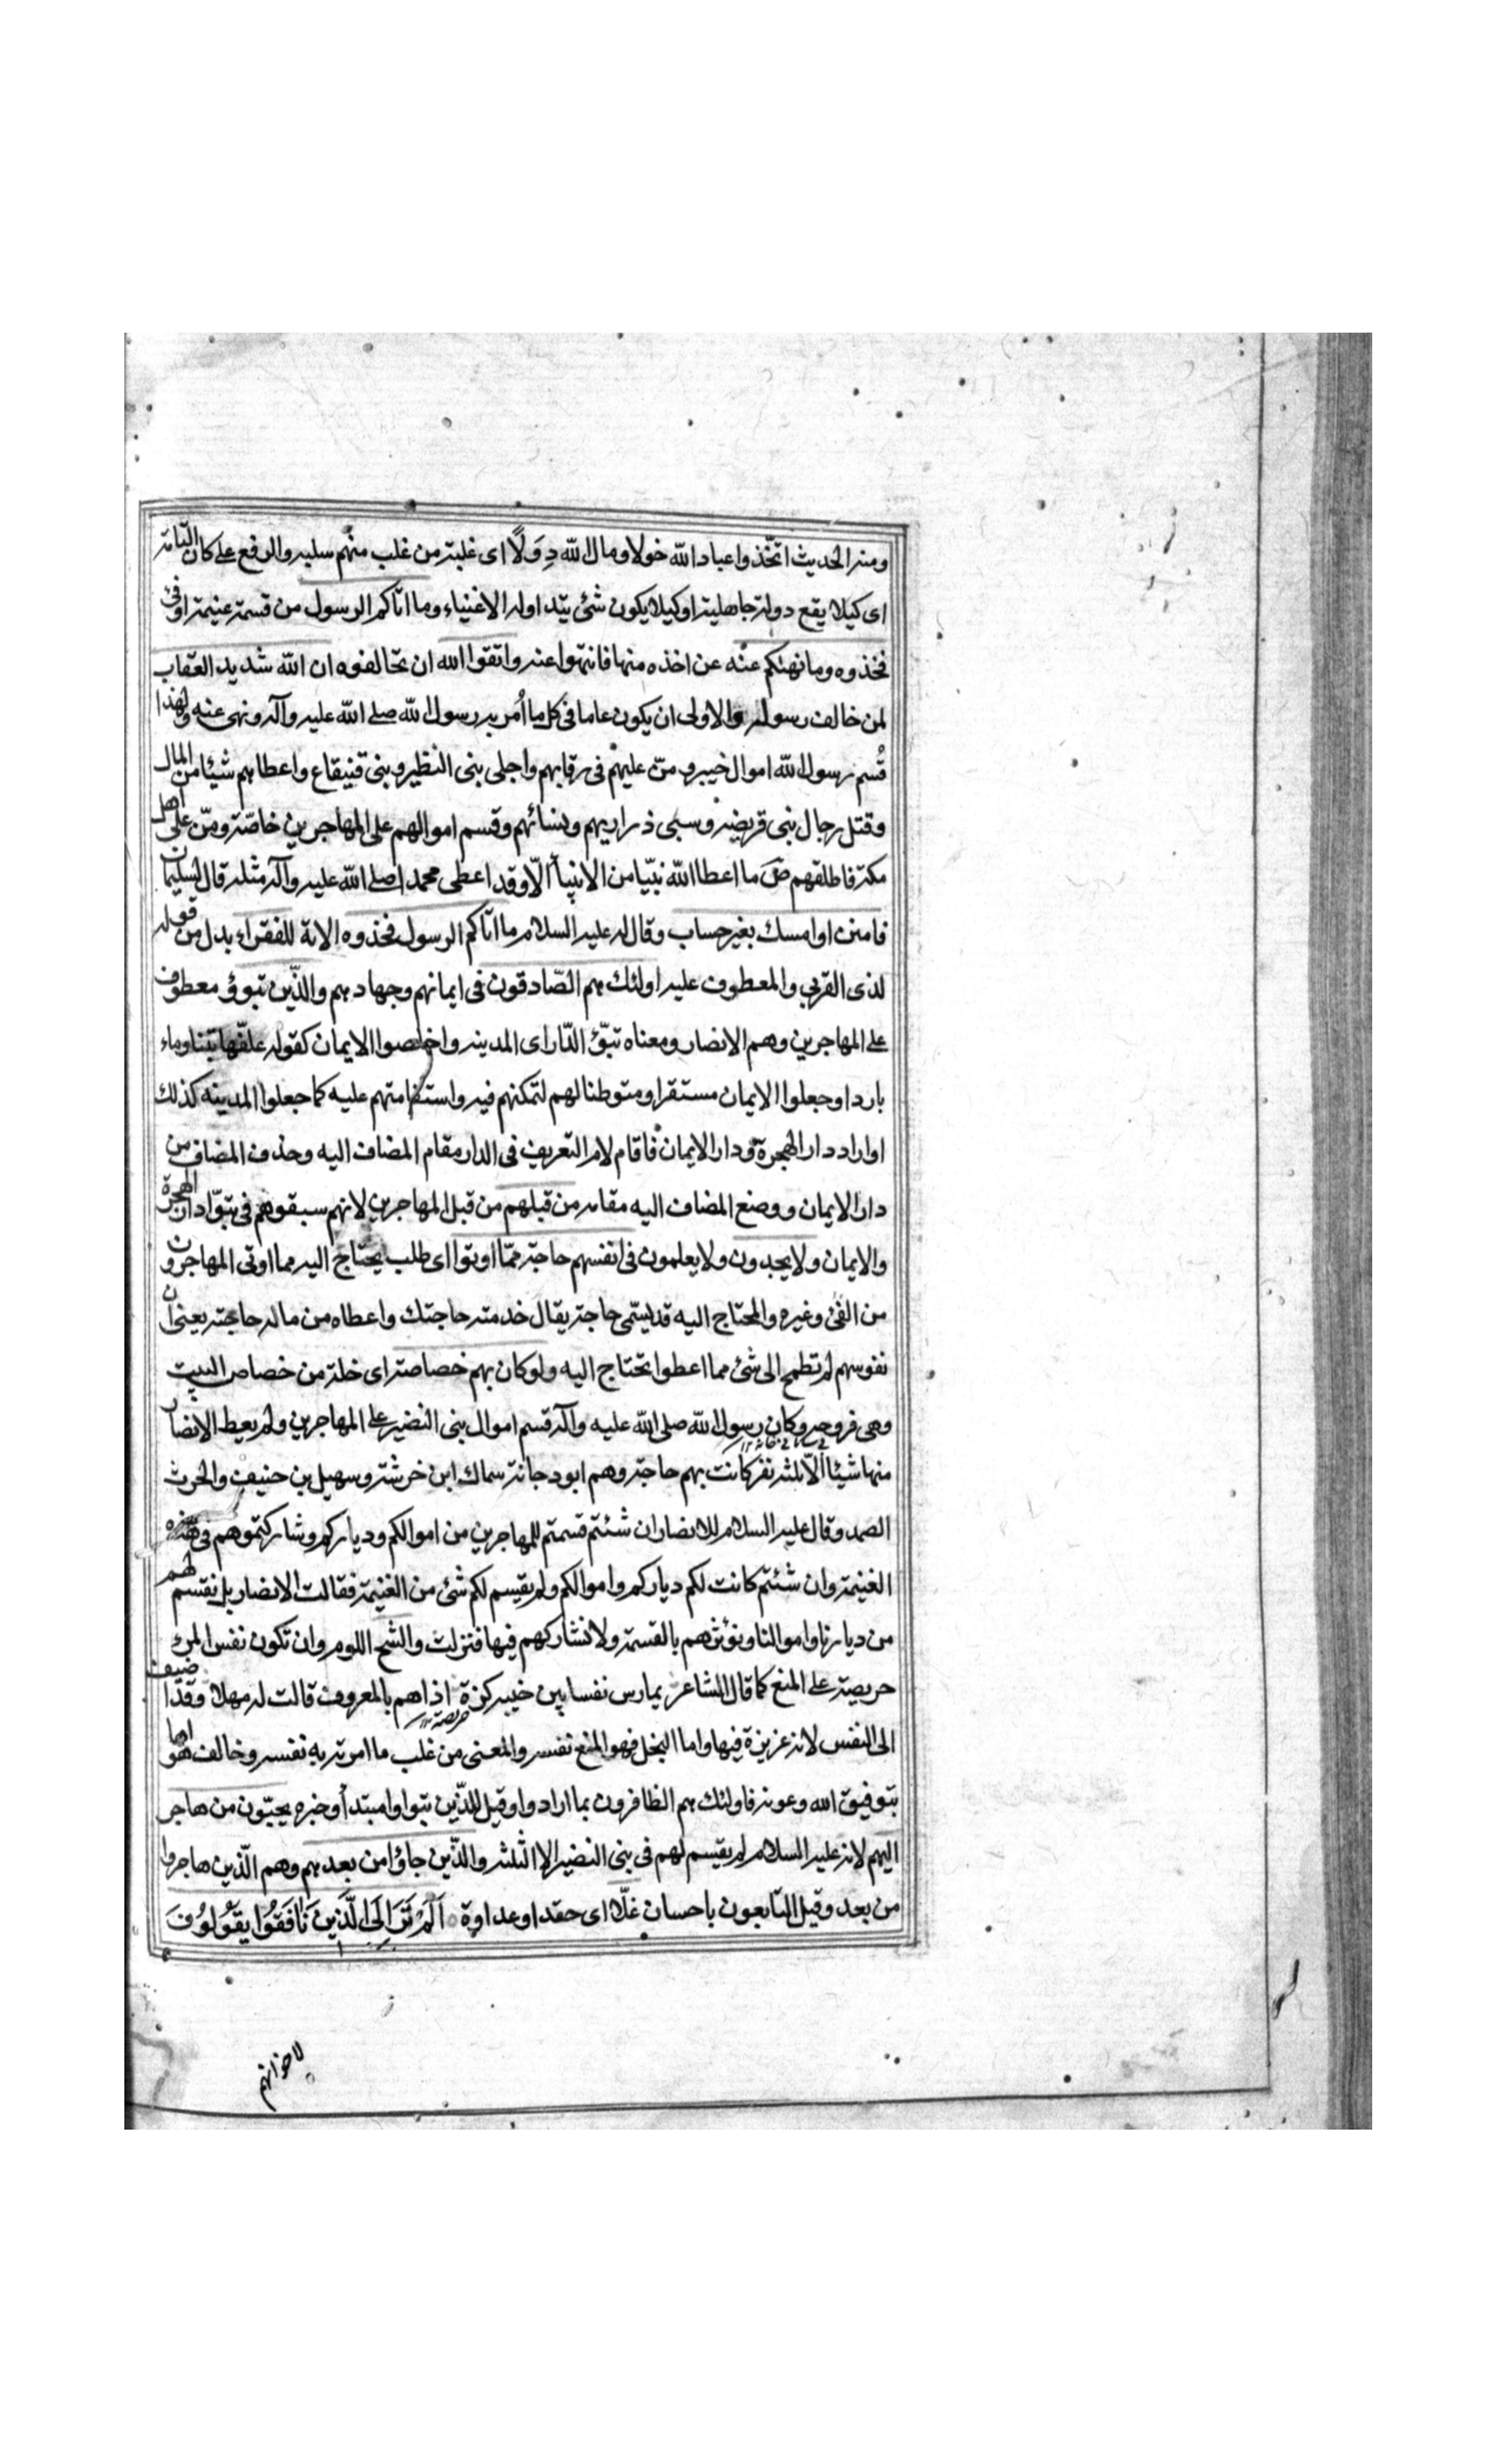 ومنه الحديث اتّخذوا عباد الله خولا ومال الله دِوَلًا اى غلبة من غلب منهم سلبه والرفع على كان التامة
اى كيلا يقع دولة جاهلية او كيلا يكون شئ يتداوله الاغنياء وما اتاكم الرسول من قسمة غنيمة او فئ
فخذوه وما نهىكم عنه عن اخذه منها فانتهوا عنه واتقوا الله ان تخالفوه ان الله شديد العقاب
لمن خالف رسوله والاولى ان يكون عاما فى كل ما اُمر به رسول الله صلے الله عليه وآله ونهى عنه ولهذا
قُسم رسول الله اموال خيبر ومنّ عليهم فى رقابهم واجلى بنى النظير وبنى قنيقاع واعطاهم شيئا من المال
وقتل رجال بنى قريضه وسبى ذراريهم ونسائهم وقسم اموالهم على المهاجرين خاصّة ومنّ على اهل
مكة فاطلقهم ص ما اعطا الله نبيّا من الانبيأ الّا وقد اعطى محمدا صلے الله عليه وآله مثله قال لسليمان
فامنن او امسك بغير حساب وقال له عليه السلام ما اتاكم الرسول فخذوه الاية للفقراء بدل من قوله
لذى القربى والمعطوف عليه اولئك هم الصّادقون فى ايمانهم وجهادهم والذّين تبوؤ معطوف
على المهاجرين وهم الانصار ومعناه تبوّؤ الدّار اى المدينه واخلصوا الايمان كقوله علفّها تبنا وماء
باردا وجعلوا الايمان مستقرا ومتوطنا لهم لتمكنهم فيه واستقامتهم عليه كما جعلوا المدينه كذلك
او اراد دار الهجرة ودار الايمان فاقام لام التعريف فى الدار مقام المضاف اليه وحذف المضاف من
دار الايمان ووضع المضاف اليه مقامه من قبلهم من قبل المهاجرين لانهم سبقوهم فى تبوّا دار الهجرة
والايمان ولا يجدون ولا يعلمون فى انفسهم حاجة ممّا اوتوا اى طلب يحتاج اليه مما اوتى المهاجرون
من الفئ وغيره والمحتاج اليه قد يسّمى حاجة يقال خدمته حاجتك واعطاه من ماله حاجته يعنى ان
نفوسهم لم تطمح الى شئ مما اعطوا تحتاج اليه ولو كان بهم خصاصة اى خلة من خصاص البيت
وهى فروجه وكان رسول الله صلى الله عليه وآله قسم اموال بنى النضير على المهاجرين ولم يعط الانصار
منها شيئا الّا ثلثه نفر كانت بهم حاجة وهم ابو دجانة سماك ابن خرشة وسهيل بن حنيف والحرث
الصمد وقال عليه السلام للانصار ان شئتم قسمتم للمهاجرين من اموالكم ودياركم وشاركتموهم فى هذه
الغنيمة وان شئتم كانت لكم دياركم واموالكم ولم يقيسم لكم شئ من الغنيمة فقالت الانصار بل نقسم لهم
من ديارنا واموالنا ونؤثرهم بالقسمة ولا نشاركهم فيها فنزلت والشح اللوم وان تكون نفس المرء
حريصة على المنع كما قال الشاعر يمارس نفسا بين جنبيه كزة اذا هم بالمعروف قالت له مهلا وقد اضيف
الى النفس لانه غريزة فيها واما البخل فهو المنع نفسه والمعنى من غلب ما امرته به نفسه وخالف هواها
بتوفيق الله وعونه فاولئك هم الظافرون بما ارادوا وقيل للذّين تبوا وا مبتدأ وخبره يحبّون من هاجر
اليهم لانه عليه السلام لم يقيسم لهم فى بنى النضير الا الثلثه والذّين جاؤا من بعدهم وهم الذّين هاجروا
من بعد وقيل التابعون باحسان غلّا اى حقدا وعداوة اَلَمْ تَرَ اِلَى الَّذِينَ نَافَقُوا يَقُولُونَ
لاخوانهم